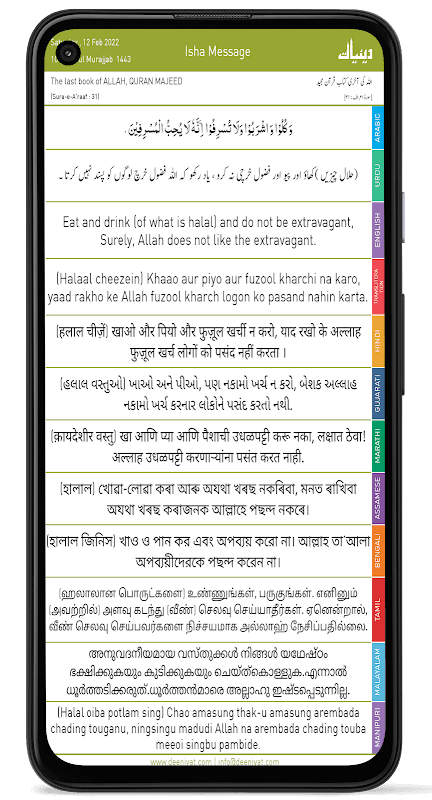 Saturday, 12 Feb 2022
Isha Message
دینیات
ul Murajjab 1443
The last book of ALLAH, QURAN MAJEED
اللہ کی آخری کتاب قرآن مجید
(Sura-e-A'raaf : 31)
وَكُلُوْا وَاشْرَبُوْا وَلَا تُسْرِفُوْا اِنَّهٗ لَا يُحِبُّ الْمُسْرِفِيْنَ.
ARABIC
(حلال چیزیں) کھاؤ اور پیو اور فضول خرچی نہ کرو، یاد رکھو کہ اللہ فضول خرچ لوگوں کو پسند نہیں کرتا۔
URDU
Eat and drink (of what is halal) and do not be extravagant,
Surely, Allah does not like the extravagant.
ENGLISH
(Halaal cheezein) Khaao aur piyo aur fuzool kharchi na karo,
yaad rakho ke Allah fuzool kharch logon ko pasand nahin karta.
(हलाल चीज़ें) खाओ और पियो और फुज़ूल खर्ची न करो, याद रखो के अल्लाह
फुज़ूल खर्च लोगों को पसंद नहीं करता ।
HINDI
(હલાલ વસ્તુઓ) ખાઓ અને પીઓ, પણ નકામો ખર્ચ ન કરો, બેશક અલ્લાહ
નકામો ખર્ચ કરનાર લોકોને પસંદ કરતો નથી.
GUJARATI
(क़ायदेशीर वस्तु) खा आणि प्या आणि पैशाची उधळपट्टी करू नका, लक्षात ठेवा!
अल्लाह उधळपट्टी करणाऱ्यांना पसंत करत नाही.
MARATHI
(হালাল) খোৱা-লোৱা কৰা আৰু অযথা খৰছ নকৰিবা, মনত ৰাখিবা
অযথা খৰছ কৰাজনক আল্লাহে পছন্দ নকৰে।
ASSAMESE
(হালাল জিনিস) খাও ও পান কর এবং অপব্যয় করো না। আল্লাহ তা'আলা
অপব্যয়ীদেরকে পছন্দ করেন না।
BENGALI
(ஹலாலான பொருட்களை) உண்ணுங்கள், பருகுங்கள். எனினும்
(அவற்றில்) அளவு கடந்து (வீண்) செலவு செய்யாதீர்கள். ஏனென்றால்,
வீண் செலவு செய்பவர்களை நிச்சயமாக அல்லாஹ் நேசிப்பதில்லை.
TAMIL
അനുവദനീയമായ വസ്തുക്കൾ നിങ്ങൾ യഥേഷ്ഠം
ഭക്ഷിക്കുകയും കുടിക്കുകയും ചെയ്ത്കൊള്ളുക.എന്നാൽ
ധൂർത്തടിക്കരുത്.ധൂർത്തൻമാരെ അല്ലാഹു ഇഷ്ടപ്പെടുന്നില്ല.
MALAYALAM
(Halal oiba potlam sing) Chao amasung thak-u amasung arembada
chading touganu, ningsingu madudi Allah na arembada chading touba
meeoi singbu pambide.
MANIPURI
www.deeniyat.com | info@deeniyat.com